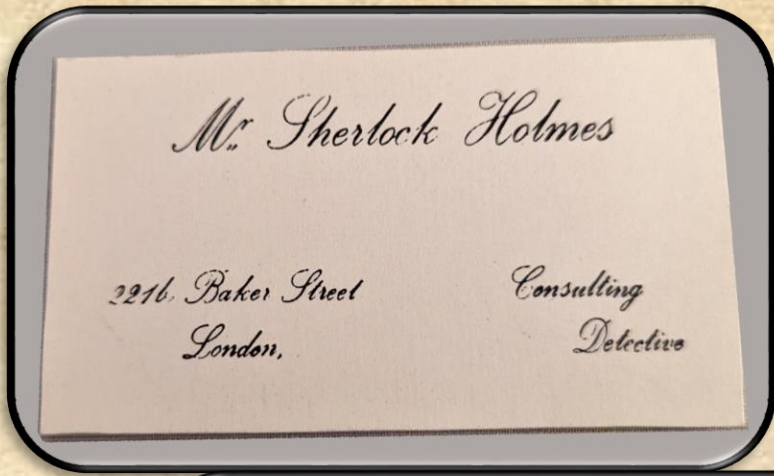 Mr. Sherlock Holmes
221b, Baker Street
London,
Consulting
Detective